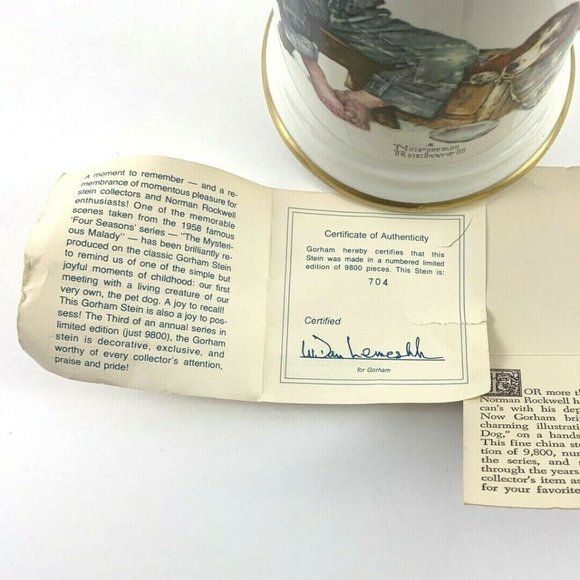 Norman
Rockwell
A moment to remember — and a re-
membrance of momentous pleasure for
stein collectors and Norman Rockwell
enthusiasts! One of the memorable
scenes taken from the 1958 famous
'Four Seasons' series — "The Mysteri-
ous Malady" — has been brilliantly re-
produced on the classic Gorham Stein
to remind us of one of the simple but
joyful moments of childhood: our first
meeting with a living creature of our
very own, the pet dog. A joy to recall!
This Gorham Stein is also a joy to pos-
sess! The Third of an annual series in
limited edition (just 9800), the Gorham
stein is decorative, exclusive, and
worthy of every collector's attention,
praise and pride!
Certificate of Authenticity
Gorham hereby certifies that this
Stein was made in a numbered limited
edition of 9800 pieces. This Stein is:
704
Certified
for Gorham
FOR more th
Norman Rockwell h
can's with his dep
Now Gorham bri
charming illustrati
Dog," on a hands
This fine china ste
tion of 9,800, num
the series, and s
through the years
collector's item as
for your favorite